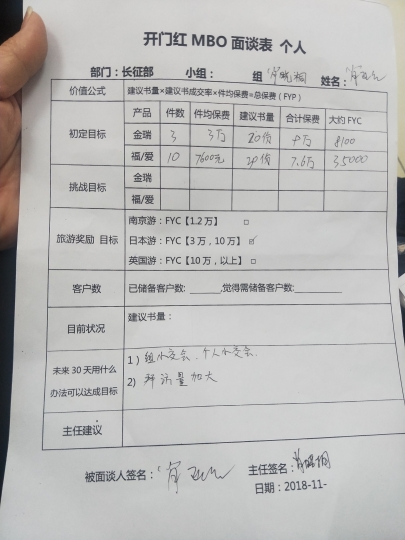 开门红 MBO 面谈表 个人
部门：长征部 小组： 组 姓名：
价值公式 建议书量×建议书成交率×件均保费=总保费（FYP）
产品 件数 件均保费 建议书量 合计保费 大约 FYC
初定目标 金瑞 3 3万 20份 9万 8100
福/爱 10 7600元 20份 7.6万 35000
挑战目标 金瑞
福/爱
南京游：FYC【1.2 万】 □
旅游奖励 目标 日本游：FYC【3 万，10 万】 ☑
英国游：FYC【10 万，以上】 □
客户数 已储备客户数: ______,觉得需储备客户数:________
目前状况 建议书量：
未来 30 天用什么办法可以达成目标 1）组小交会、个人小交会.
2) 拜访量加大
主任建议
被面谈人签名： 主任签名：
日期：2018-11-